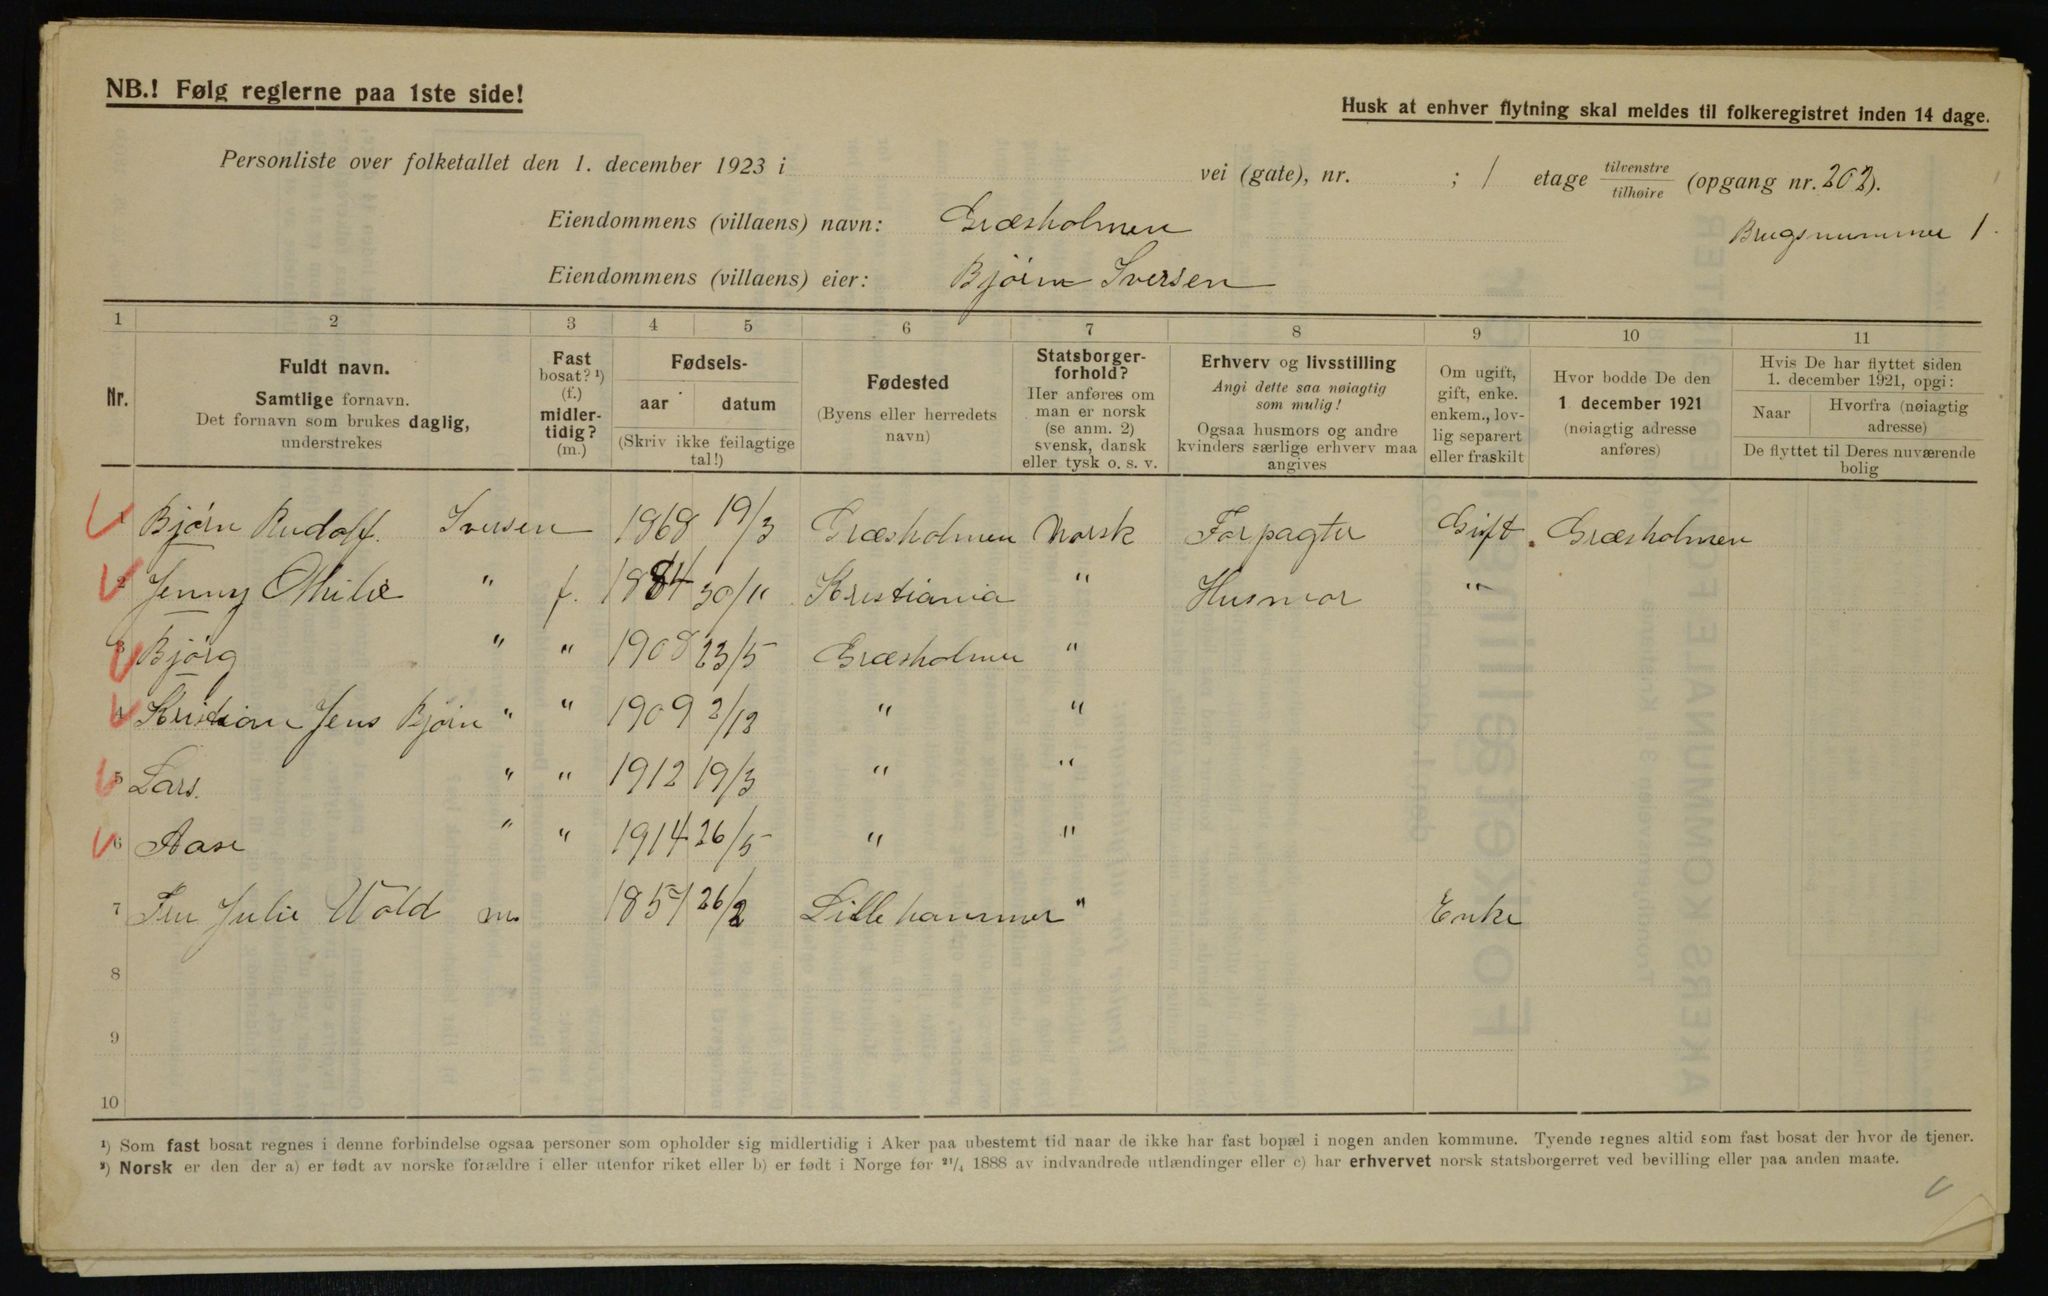 NB.! Følg reglerne paa 1ste side!
Husk at enhver flytning skal meldes til folkeregistret inden 14 dage.
Personliste over folketallet den 1. december 1923 i vei (gate), nr. ; 1 etage tilvenstre tilhøire (opgang nr. 202).
Eiendommens (villaens) navn: Græsholmen Brugsnummer 1.
Eiendommens (villaens) eier: Bjørn Iversen
1 2 3 4 5 6 7 8 9 10 11
Nr.
Fuldt navn.
Samtlige fornavn.
Det fornavn som brukes daglig,
understrekes
Fast
bosat? ¹)
(f.)
midler-
tidig?
(m.)
Fødsels-
aar datum
(Skriv ikke feilagtige
tal!)
Fødested
(Byens eller herredets
navn)
Statsborger-
forhold?
Her anføres om
man er norsk
(se anm. 2)
svensk, dansk
eller tysk o. s. v.
Erhverv og livsstilling
Angi dette saa nøiagtig
som mulig!
Ogsaa husmors og andre
kvinders særlige erhverv maa
angives
Om ugift,
gift, enke.
enkem., lov-
lig separert
eller fraskilt
Hvor bodde De den
1 december 1921
(nøiagtig adresse
anføres)
Hvis De har flyttet siden
1. december 1921, opgi:
Naar Hvorfra (nøiagtig
adresse)
De flyttet til Deres nuværende
bolig
1 Bjørn Rudolf. Iversen 1868 19/3 Græsholmen Norsk Forpagter Gift. Græsholmen
2 Jenny Othilie " f. 1884 30/11 Kristiania " Husmor "
3 Bjørg " " 1908 23/5 Græsholmen "
4 Kristian Jens Bjørn " " 1909 2/12 " "
5 Lars. " " 1912 19/3 " "
6 Aase " " 1914 26/5 " "
7 Fru Julie Wold m. 1857 26/2 Lillehammer " Enke
8
9
10
¹) Som fast bosat regnes i denne forbindelse ogsaa personer som opholder sig midlertidig i Aker paa ubestemt tid naar de ikke har fast bopæl i nogen anden kommune. Tyende regnes altid som fast bosat der hvor de tjener.
²) Norsk er den der a) er født av norske forældre i eller utenfor riket eller b) er født i Norge før ²¹/₄ 1888 av indvandrede utlændinger eller c) har erhvervet norsk statsborgerret ved bevilling eller paa anden maate.